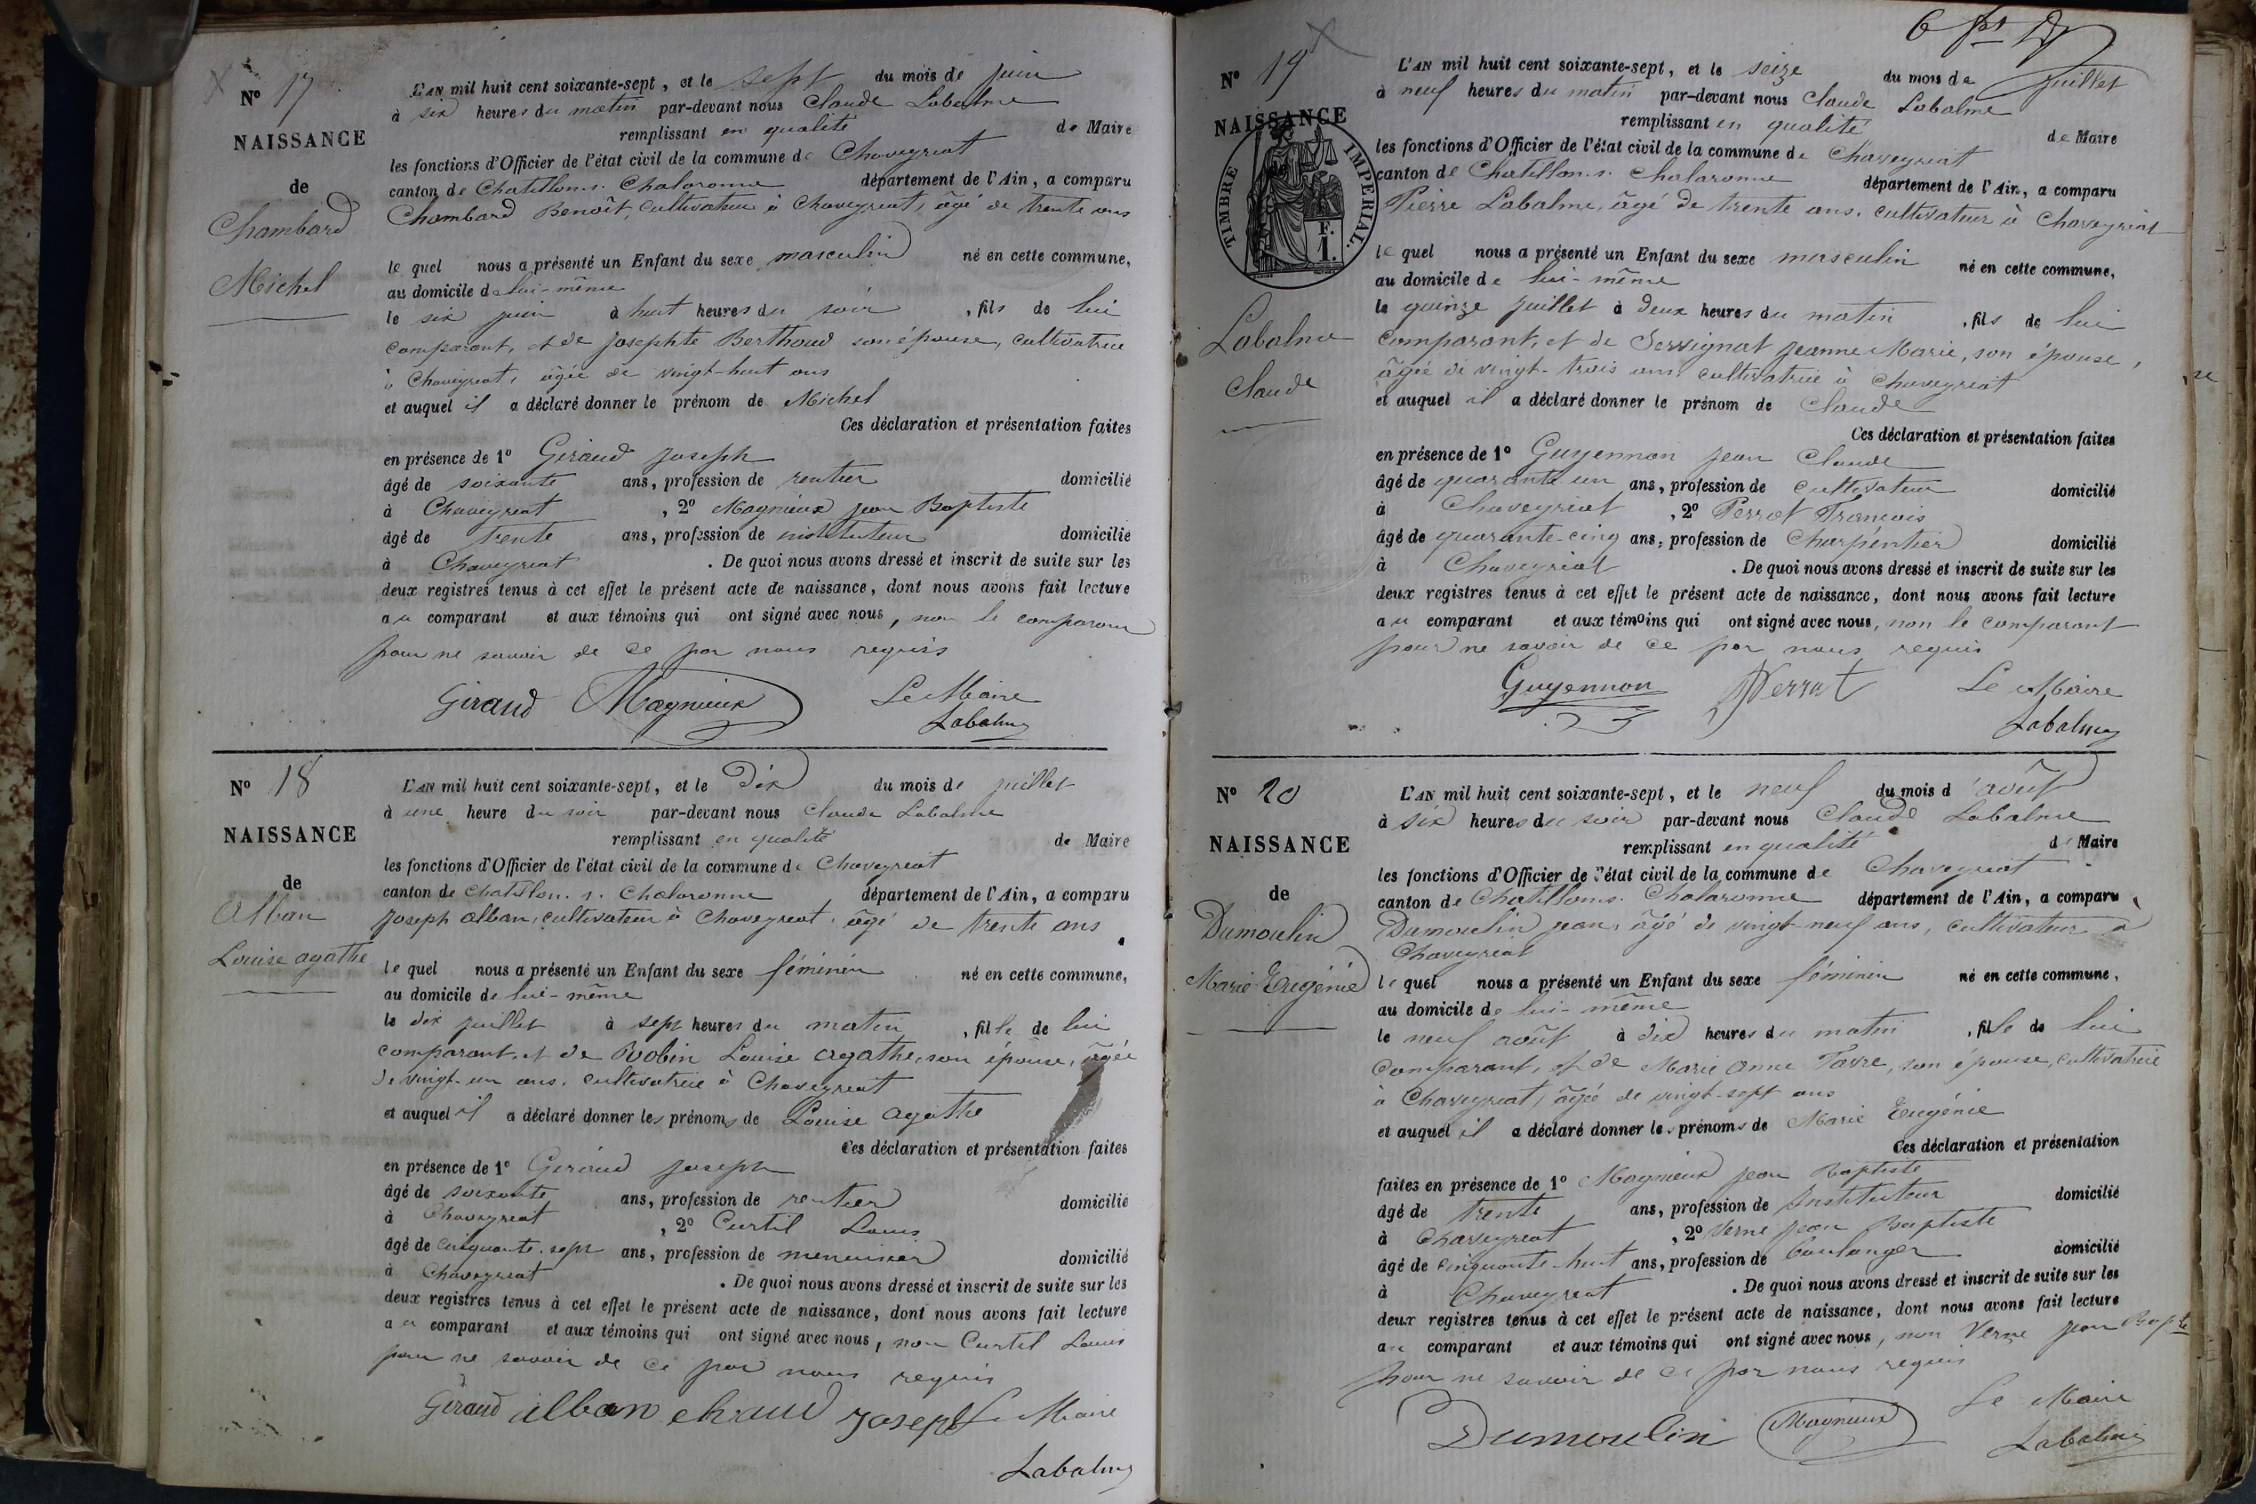 N° 17
NAISSANCE
de
Chambard
Michel
L'AN mil huit cent soixante-sept, et le sept du mois de juin
à six heures du matin par-devant nous Claude Labalme
remplissant en qualité de Maire
les fonctions d'Officier de l'état civil de la commune de Chaveyriat
canton de Chatillon s. Chalaronne département de l'Ain, a comparu
Chambard Benoît, cultivateur à Chaveyriat, âgé de trente ans
lequel nous a présenté un Enfant du sexe masculin né en cette commune,
au domicile de lui-même
le six juin à huit heures du soir, fils de lui
comparant, et de Josephte Berthoud son épouse, cultivatrice
à Chaveyriat, âgée de vingt-huit ans
et auquel il a déclaré donner le prénom de Michel
Ces déclaration et présentation faites
en présence de 1° Giraud Joseph
âgé de soixante ans, profession de rentier domicilié
à Chaveyriat, 2° Magnieux Jean Baptiste
âgé de trente ans, profession de instituteur domicilié
à Chaveyriat. De quoi nous avons dressé et inscrit de suite sur les
deux registres tenus à cet effet le présent acte de naissance, dont nous avons fait lecture
au comparant et aux témoins qui ont signé avec nous, non le comparant
pour ne savoir de ce par nous requis
Giraud Magnieux Le Maire
Labalme
N° 18
NAISSANCE
de
Alban
Louise agathe
L'AN mil huit cent soixante-sept, et le Dix du mois de juillet
à une heure du soir par-devant nous Claude Labalme
remplissant en qualité de Maire
les fonctions d'Officier de l'état civil de la commune de Chaveyriat
canton de Chatillon s. Chalaronne département de l'Ain, a comparu
Joseph Alban, cultivateur à Chaveyriat, âgé de trente ans
lequel nous a présenté un Enfant du sexe féminin né en cette commune,
au domicile de lui-même
le dix juillet à sept heures du matin, fille de lui
comparant, et de Robin Louise agathe, son épouse, âgée
de vingt-un ans, cultivatrice à Chaveyriat
et auquel il a déclaré donner les prénoms de Louise agathe
Ces déclaration et présentation faites
en présence de 1° Giraud Joseph
âgé de soixante ans, profession de rentier domicilié
à Chaveyriat, 2° Curtil Louis
âgé de cinquante-sept ans, profession de menuisier domicilié
à Chaveyriat. De quoi nous avons dressé et inscrit de suite sur les
deux registres tenus à cet effet le présent acte de naissance, dont nous avons fait lecture
au comparant et aux témoins qui ont signé avec nous, non Curtil Louis
pour ne savoir de ce par nous requis
Giraud alban Joseph Le Maire
Labalme
N° 19
NAISSANCE
TIMBRE IMPERIAL.
F.
1.
Labalme
Claude
L'AN mil huit cent soixante-sept, et le seize du mois de juillet
à neuf heures du matin par-devant nous Claude Labalme
remplissant en qualité de Maire
les fonctions d'Officier de l'état civil de la commune de Chaveyriat
canton de Chatillon s. Chalaronne département de l'Ain, a comparu
Pierre Labalme, âgé de trente ans, cultivateur à Chaveyriat
lequel nous a présenté un Enfant du sexe masculin né en cette commune,
au domicile de lui-même
le quinze juillet à deux heures du matin, fils de lui
comparant, et de Servignat Jeanne Marie, son épouse,
âgée de vingt-trois ans cultivatrice à Chaveyriat
et auquel il a déclaré donner le prénom de Claude
Ces déclaration et présentation faites
en présence de 1° Guyennon Jean Claude
âgé de quarante un ans, profession de cultivateur domicilié
à Chaveyriat, 2° Perrat François
âgé de quarante-cinq ans, profession de Charpentier domicilié
à Chaveyriat. De quoi nous avons dressé et inscrit de suite sur les
deux registres tenus à cet effet le présent acte de naissance, dont nous avons fait lecture
au comparant et aux témoins qui ont signé avec nous, non le comparant
pour ne savoir de ce par nous requis
Guyennon Perrat Le Maire
Labalme
N° 20
NAISSANCE
de
Dumoulin
Marie Eugénie
L'AN mil huit cent soixante-sept, et le neuf du mois d'août
à six heures du soir par-devant nous Claude Labalme
remplissant en qualité de Maire
les fonctions d'Officier de l'état civil de la commune de Chaveyriat
canton de Chatillon s. Chalaronne département de l'Ain, a comparu
Dumoulin Jean, âgé de vingt-neuf ans, cultivateur à
Chaveyriat
lequel nous a présenté un Enfant du sexe féminin né en cette commune,
au domicile de lui-même
le neuf août à dix heures du matin, fille de lui
comparant, et de Marie Anne Favre, son épouse, cultivatrice
à Chaveyriat, âgée de vingt-sept ans
et auquel il a déclaré donner les prénoms de Marie Eugénie
Ces déclaration et présentation
faites en présence de 1° Magnieux Jean Baptiste
âgé de trente ans, profession de Instituteur domicilié
à Chaveyriat, 2° Verne Jean Baptiste
âgé de cinquante-huit ans, profession de boulanger domicilié
à Chaveyriat. De quoi nous avons dressé et inscrit de suite sur les
deux registres tenus à cet effet le présent acte de naissance, dont nous avons fait lecture
au comparant et aux témoins qui ont signé avec nous, non Verne Jean Bapte
pour ne savoir de ce par nous requis
Dumoulin Magnieux Le Maire
Labalme